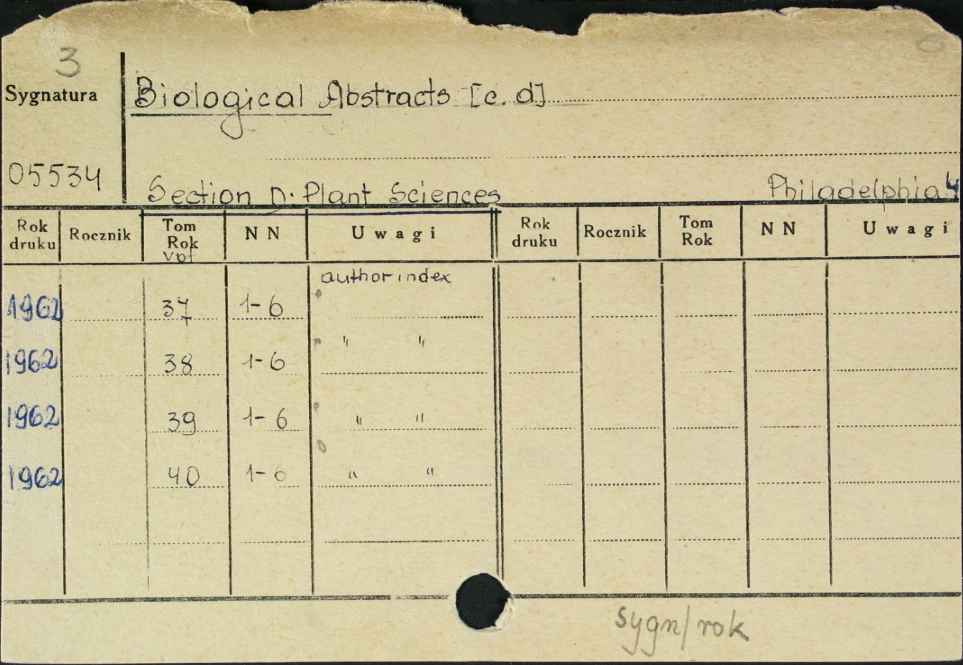 3
Sygnatura
Biological Abstracts [c. d]
05534
Section D. Plant Sciences
Philadelphia
Rok druku Rocznik Tom Rok vol NN Uwagi Rok druku Rocznik Tom Rok NN Uwagi
author index
1962 37 1-6
1962 38 1-6 " "
1962 39 1-6 " "
1962 40 1-6 " "
sygn/rok